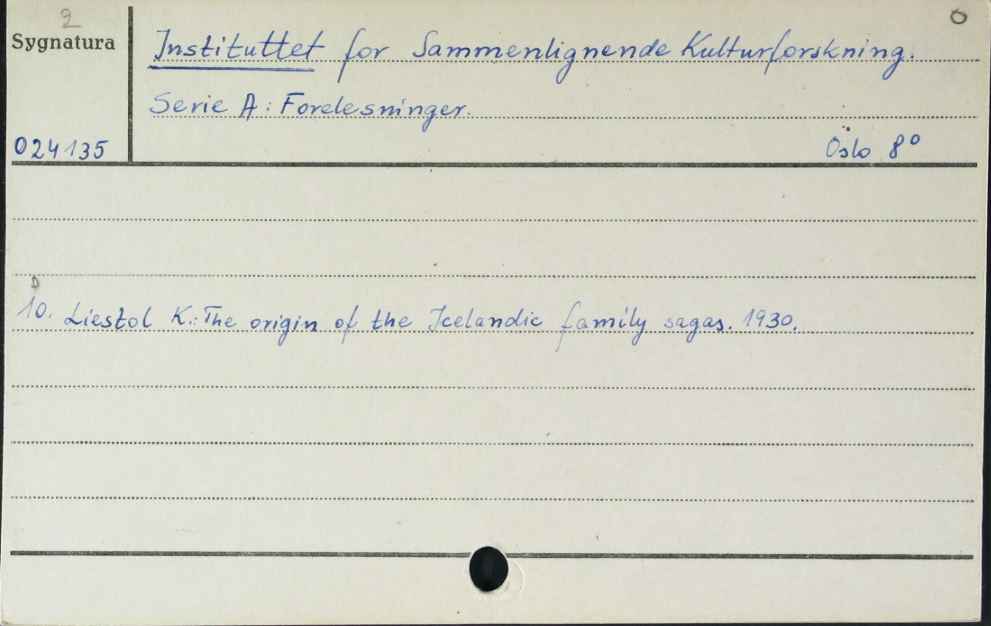 2
0
Sygnatura
Instituttet for Sammenlignende Kulturforskning.
Serie A: Forelesninger.
024135
Oslo 8°
D
10. Liestol K.: The origin of the Icelandic family sagas. 1930.